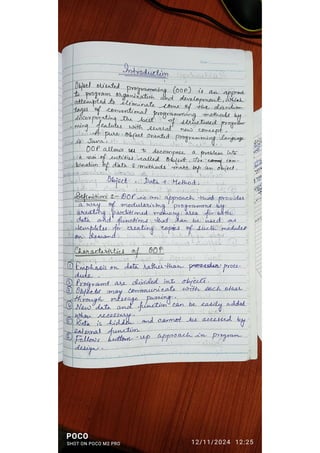 Introduction
Object oriented programming (OOP) is an approa
to program organization and development, which
attempted to eliminate some of the disadvan-
tages of conventional programming methods by
incorporating the best of structured program
ming features with several new concept.
A pure object oriented programming language
is Java.
OOP allows us to decompose a problem into
a no. of entities called Object. com-
bination of data & methods make up an object.
Object : Data + Method.
Definition :- OOP is an approach that provides
a way of modularizing programmed by
creating partitioned memory area for both
data and functions that can be used as
templates for creating copies of such modules
on demand.
Characteristics of OOP
1 Emphasis on data rather than proce-
dure.
2 Programs are divided into objects.
3 Objects may communicate with each other
through message passing.
4 New data and function can be easily added
when necessary.
5 Data is hidden and cannot be accessed by
external function.
6 Follows bottom-up approach in program
design.
POCO
SHOT ON POCO M2 PRO
12/11/2024 12:25